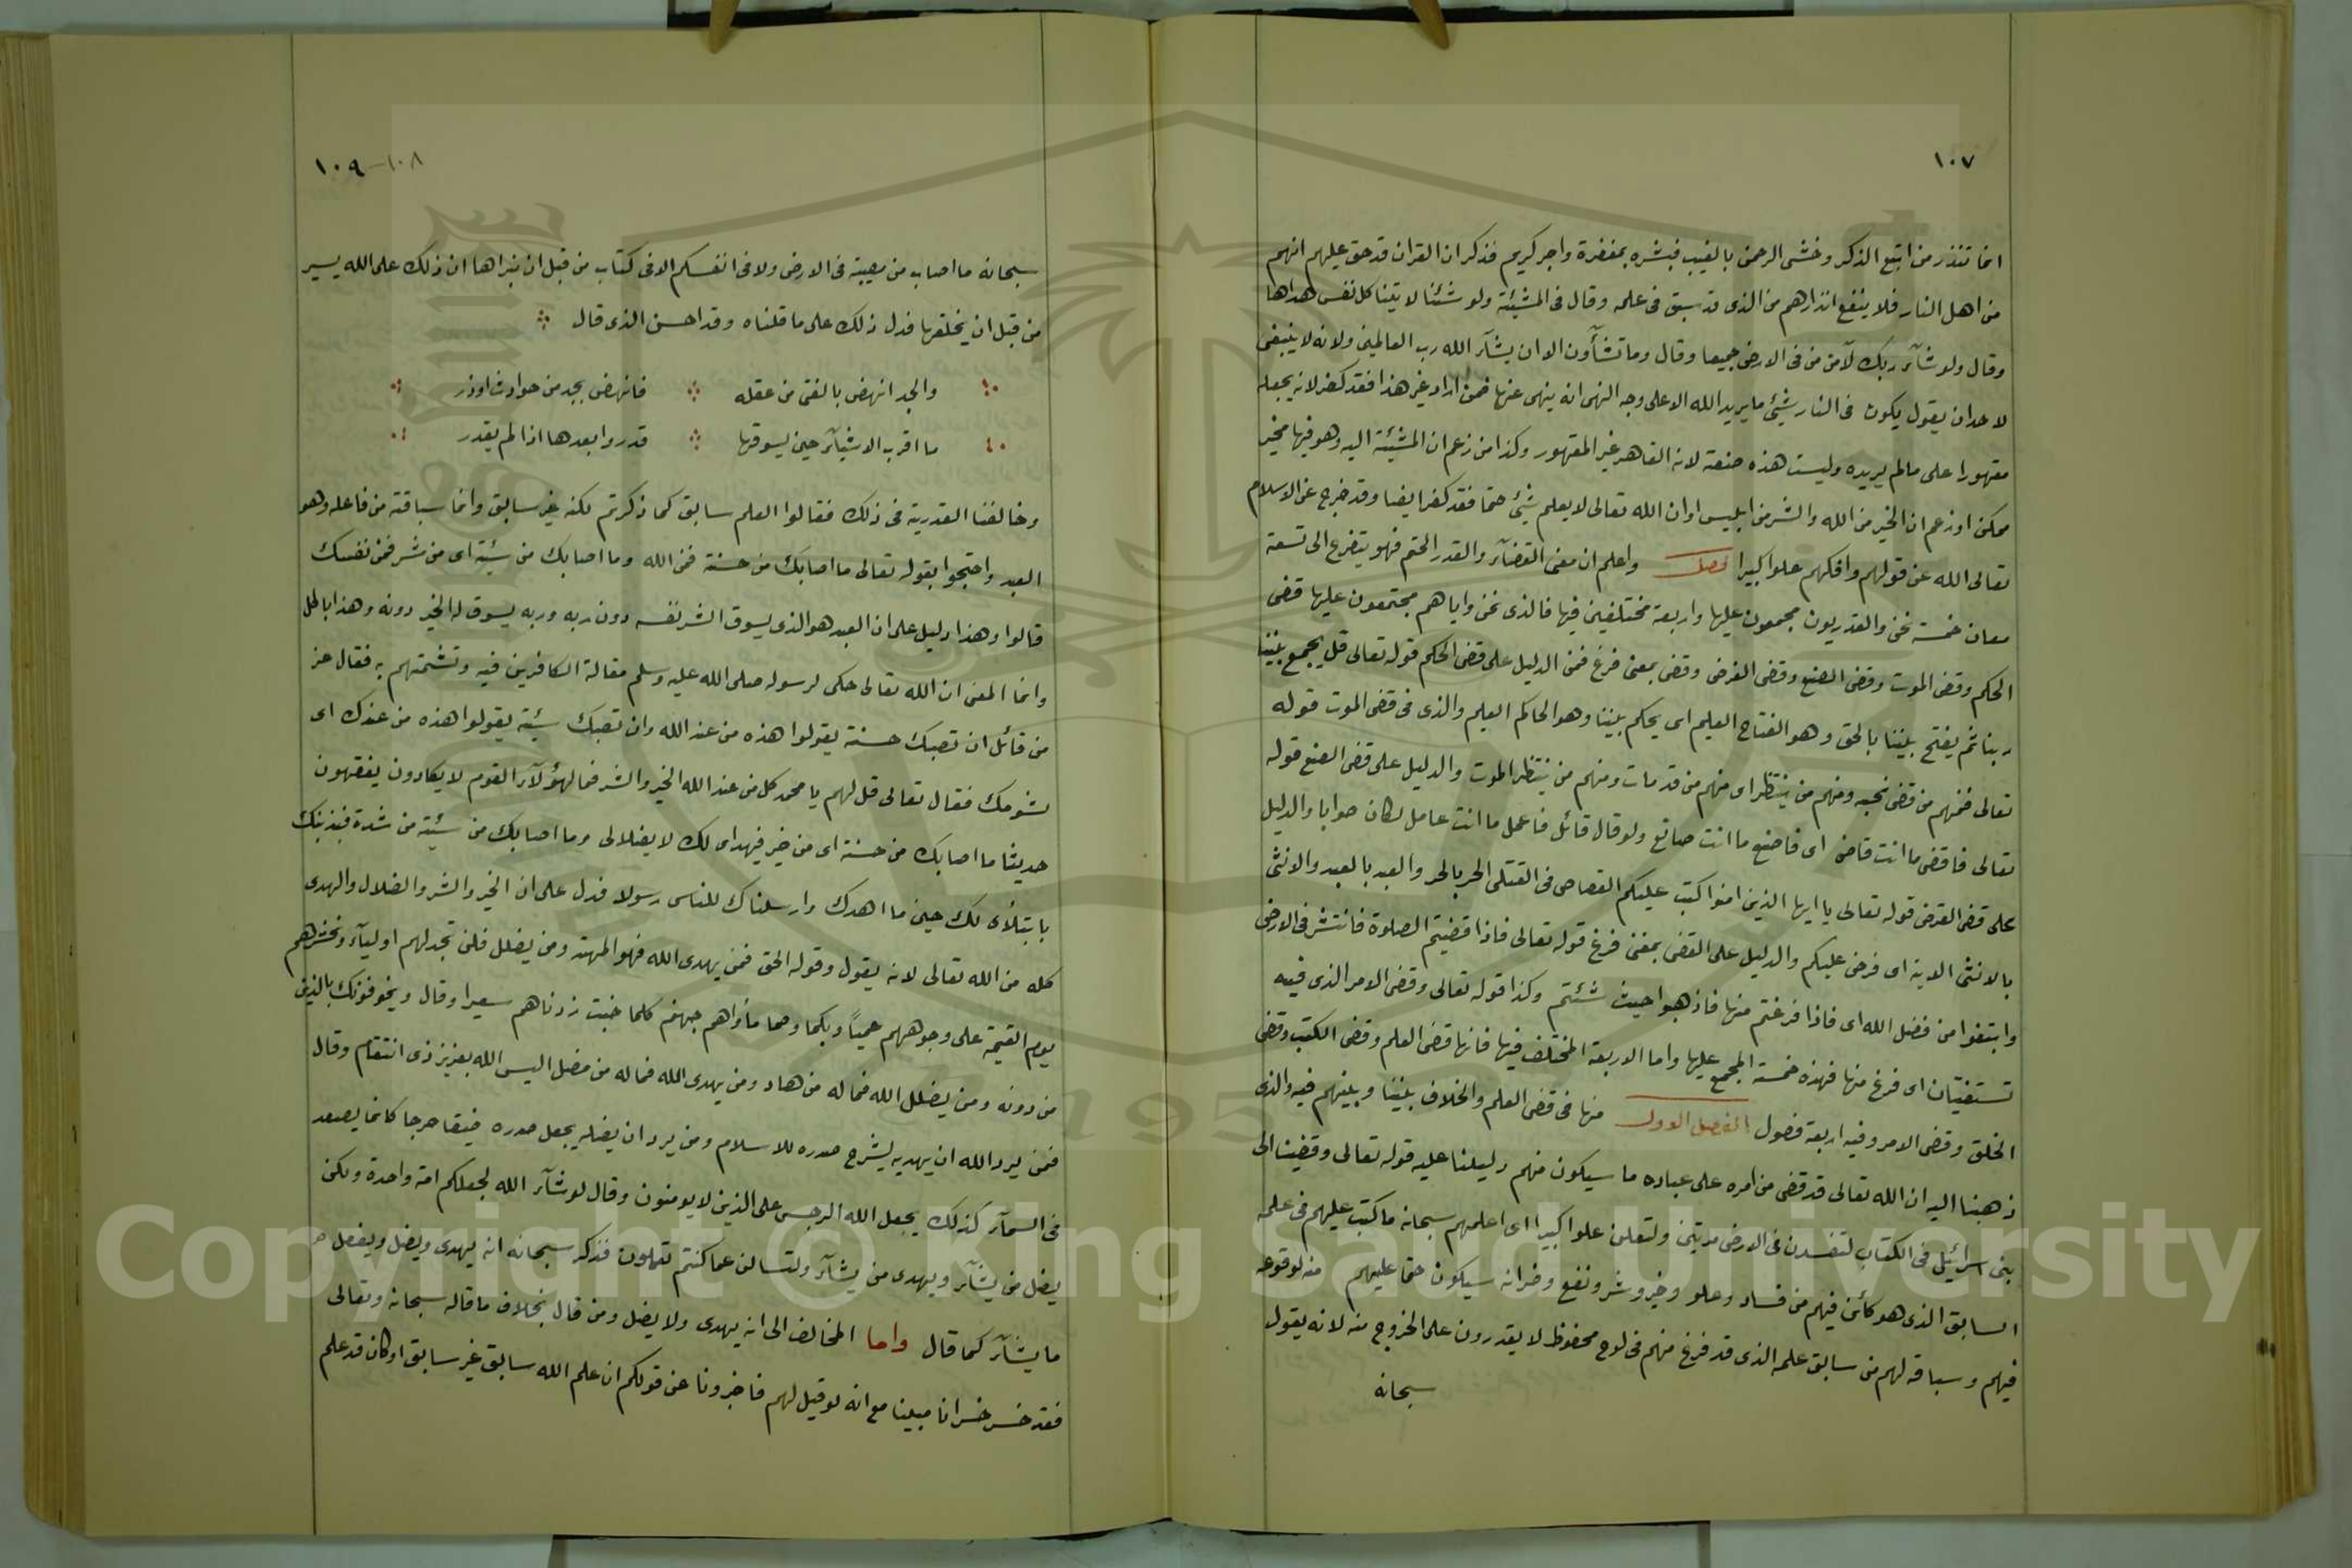 ١٠٧
انما تنذر من اتبع الذكر وخشى الرحمن بالغيب فبشره بمغفرة واجر كريم فذكر ان القران قد حق عليهم انهم
من اهل النار فلا ينفع انذارهم من الذى قد سبق فى علمه وقال فى المشيئة ولو شئنا لاتينا كل نفس هداها
وقال ولو شآء ربك لآمن من فى الارض جميعا وقال وما تشآؤن الا ان يشآء الله رب العالمين ولانه لا ينبغى
لاحد ان يقول يكون فى النار شيئ ما يريد الله الا على وجه النهى انه ينهى عنها فمن اراد غير هذا فقد كفر لانه يجعله
مقهورا على مالم يريده وليست هذه صنعة لانه القاهر غير المقهور وكذا من زعم ان المشيئة اليه وهو فيها مخير
ممكن او زعم ان الخير من الله والشر من ابليس او ان الله تعالى لا يعلم شيئ حتما فقد كفر ايضا وقد خرج عن الاسلام
تعالى الله عن قولهم وافكهم علوا كبيرا فصل واعلم ان معنى القضآء والقدر الحتم فهو يتضرع الى تسعة
معان خمسة نحن والقدريون مجمعون عليها واربعة مختلفين فيها فالذى نحن واياهم مجتمعون عليها قضى
الحكم وقضى الموت وقضى الصنع وقضى الفرض وقضى بمعنى فرغ فمن الدليل على قضى الحكم قوله تعالى قل يجمع بيننا
ربنا ثم يفتح بيننا بالحق وهو الفتاح العليم اى يحكم بيننا وهو الحاكم العليم والذى فى قضى الموت قوله
تعالى فمنهم من قضى نحبه ومنهم من ينتظر اى منهم من قد مات ومنهم من ينتظر الموت والدليل على قضى الصنع قوله
تعالى فاقض ما انت قاض اى فاصنع ما انت صانع ولو قال قائل فاعمل ما انت عامل لكان صوابا والدليل
على قضى الفرض قوله تعالى يا ايها الذين امنوا كتب عليكم القصاص فى القتلى الحر بالحر والعبد بالعبد والانثى
بالانثى الاية اى فرض عليكم والدليل على القضى بمعنى فرغ قوله تعالى فاذا قضيتم الصلوة فانتشر فى الارض
وابتغوا من فضل الله اى فاذا فرغتم منها فاذهبوا حيث شئتم وكذا قوله تعالى وقضى الامر الذى فيه
تستفتيان اى فرغ منها فهذه خمسة المجمع عليها واما الاربعة المختلف فيها فانها قضى العلم وقضى الكتب وقضى
الخلق وقضى الامر وفيه اربعة فصول الفصل الاول منها فى قضى العلم والخلاف بيننا وبينهم فيه والذى
ذهبنا اليه ان الله تعالى قد قضى من امره على عباده ما سيكون منهم دليلنا عليه قوله تعالى وقضينا الى
بنى اسرائيل فى الكتاب لتفسدن فى الارض مرتين ولتعلن علوا كبيرا اى اعلمهم سبحانه ما كتب عليهم فى علمه
السابق الذى هو كائن فيهم من فساد وعلو وخير وشر ونفع وضر انه سيكون حتما عليهم منه لوقوعه
فيهم وسباقه لهم من سابق علمه الذى قد فرغ منهم فى لوح محفوظ لا يقدرون على الخروج منه لانه يقول
سبحانه
١٠٨-١٠٩
سبحانه ما اصاب من مصيبة فى الارض ولا فى انفسكم الا فى كتاب من قبل ان نبراها ان ذلك على الله يسير
من قبل ان يخلقها فدل ذلك على ما قلناه وقد احسن الذى قال
والجد انهض بالفتى من عقله فانهض بجد من حوادث اوذر
ما اقرب الاشيآء حين يسوقها قدر وابعدها اذا لم يقدر
وخالفنا القدرية فى ذلك فقالوا العلم سابق كما ذكرتم لكنه غير سابق وانما سباقته من فاعله وهو
العبد واحتجوا بقوله تعالى ما اصابك من حسنة فمن الله وما اصابك من سيئة اى من شر فمن نفسك
قالوا وهذا دليل على ان العبد هو الذى يسوق الشر نفسه دون ربه وربه يسوق له الخير دونه وهذا باطل
وانما المعنى ان الله تعالى حكى لرسوله صلى الله عليه وسلم مقالة الكافرين فيه وتشئمتهم به فقال عز
من قآئل ان تصبك حسنة يقولوا هذه من عند الله وان تصبك سيئة يقولوا هذه من عندك اى
بشومك فقال تعالى قل لهم يا محمد كل من عند الله الخير والشر فما لهؤلآء القوم لا يكادون يفقهون
حديثا ما اصابك من حسنة اى من خير فيهداى لك لا يضلالى وما اصابك من سيئة من شدة فبذنبك
بابتلآى لك حين ما اهدك وارسلناك للناس رسولا فدل على ان الخير والشر والضلال والهدى
كله من الله تعالى لانه يقول وقوله الحق فمن يهدى الله فهو المهتد ومن يضلل فلن تجد لهم اوليآء ونحشرهم
يوم القيمة على وجوههم عمياً وبكما وصما مأواهم جهنم كلما خبت زدناهم سعيرا وقال ويخوفونك بالذين
من دونه ومن يضلل الله فما له من هاد ومن يهدى الله فما له من مضل اليس الله بعزيز ذى انتقام وقال
فمن يرد الله ان يهديه يشرح صدره للاسلام ومن يرد ان يضله يجعل صدره ضيقا حرجا كانما يصعد
فى السمآء كذلك يجعل الله الرجس على الذين لا يومنون وقال لو شآء الله لجعلكم امة واحدة ولكن
يضل من يشآء ويهدى من يشآء ولتسالن عما كنتم تعملون فذكر سبحانه انه يهدى ويضل ويفعل
ما يشآء كما قال واما المخالف الى انه يهدى ولا يضل ومن قال بخلاف ما قاله سبحانه وتعالى
فقد خسر خسرانا مبينا مع انه لو قيل لهم فاخبرونا عن قولكم ان علم الله سابق غير سابق او كان قد علم
Copyright © King Saud University
1957